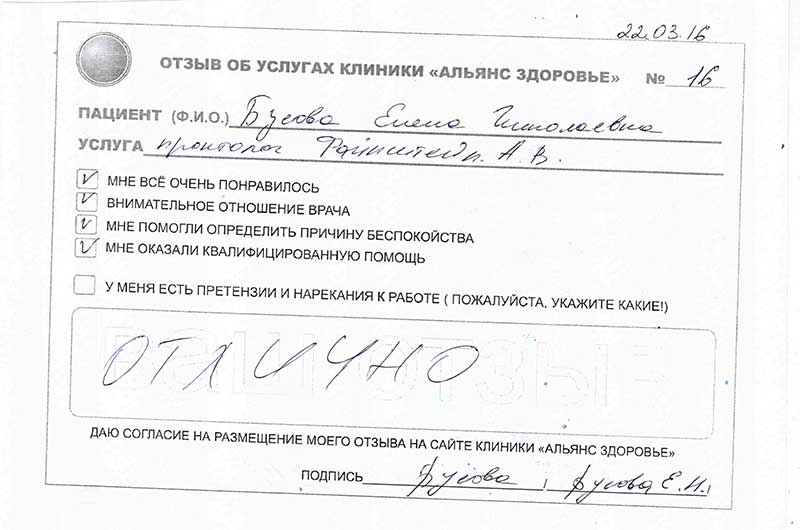 22.03.16
ОТЗЫВ ОБ УСЛУГАХ КЛИНИКИ «АЛЬЯНС ЗДОРОВЬЕ» № 16
ПАЦИЕНТ (Ф.И.О.) Бусова Елена Николаевна
УСЛУГА проктолог Файнштейн. А. В.
МНЕ ВСЁ ОЧЕНЬ ПОНРАВИЛОСЬ
ВНИМАТЕЛЬНОЕ ОТНОШЕНИЕ ВРАЧА
МНЕ ПОМОГЛИ ОПРЕДЕЛИТЬ ПРИЧИНУ БЕСПОКОЙСТВА
МНЕ ОКАЗАЛИ КВАЛИФИЦИРОВАННУЮ ПОМОЩЬ
У МЕНЯ ЕСТЬ ПРЕТЕНЗИИ И НАРЕКАНИЯ К РАБОТЕ ( ПОЖАЛУЙСТА, УКАЖИТЕ КАКИЕ!)
ВАШ ОТЗЫВ
ОТЛИЧНО
ДАЮ СОГЛАСИЕ НА РАЗМЕЩЕНИЕ МОЕГО ОТЗЫВА НА САЙТЕ КЛИНИКИ «АЛЬЯНС ЗДОРОВЬЕ»
ПОДПИСЬ Бусова / Бусова Е.Н./